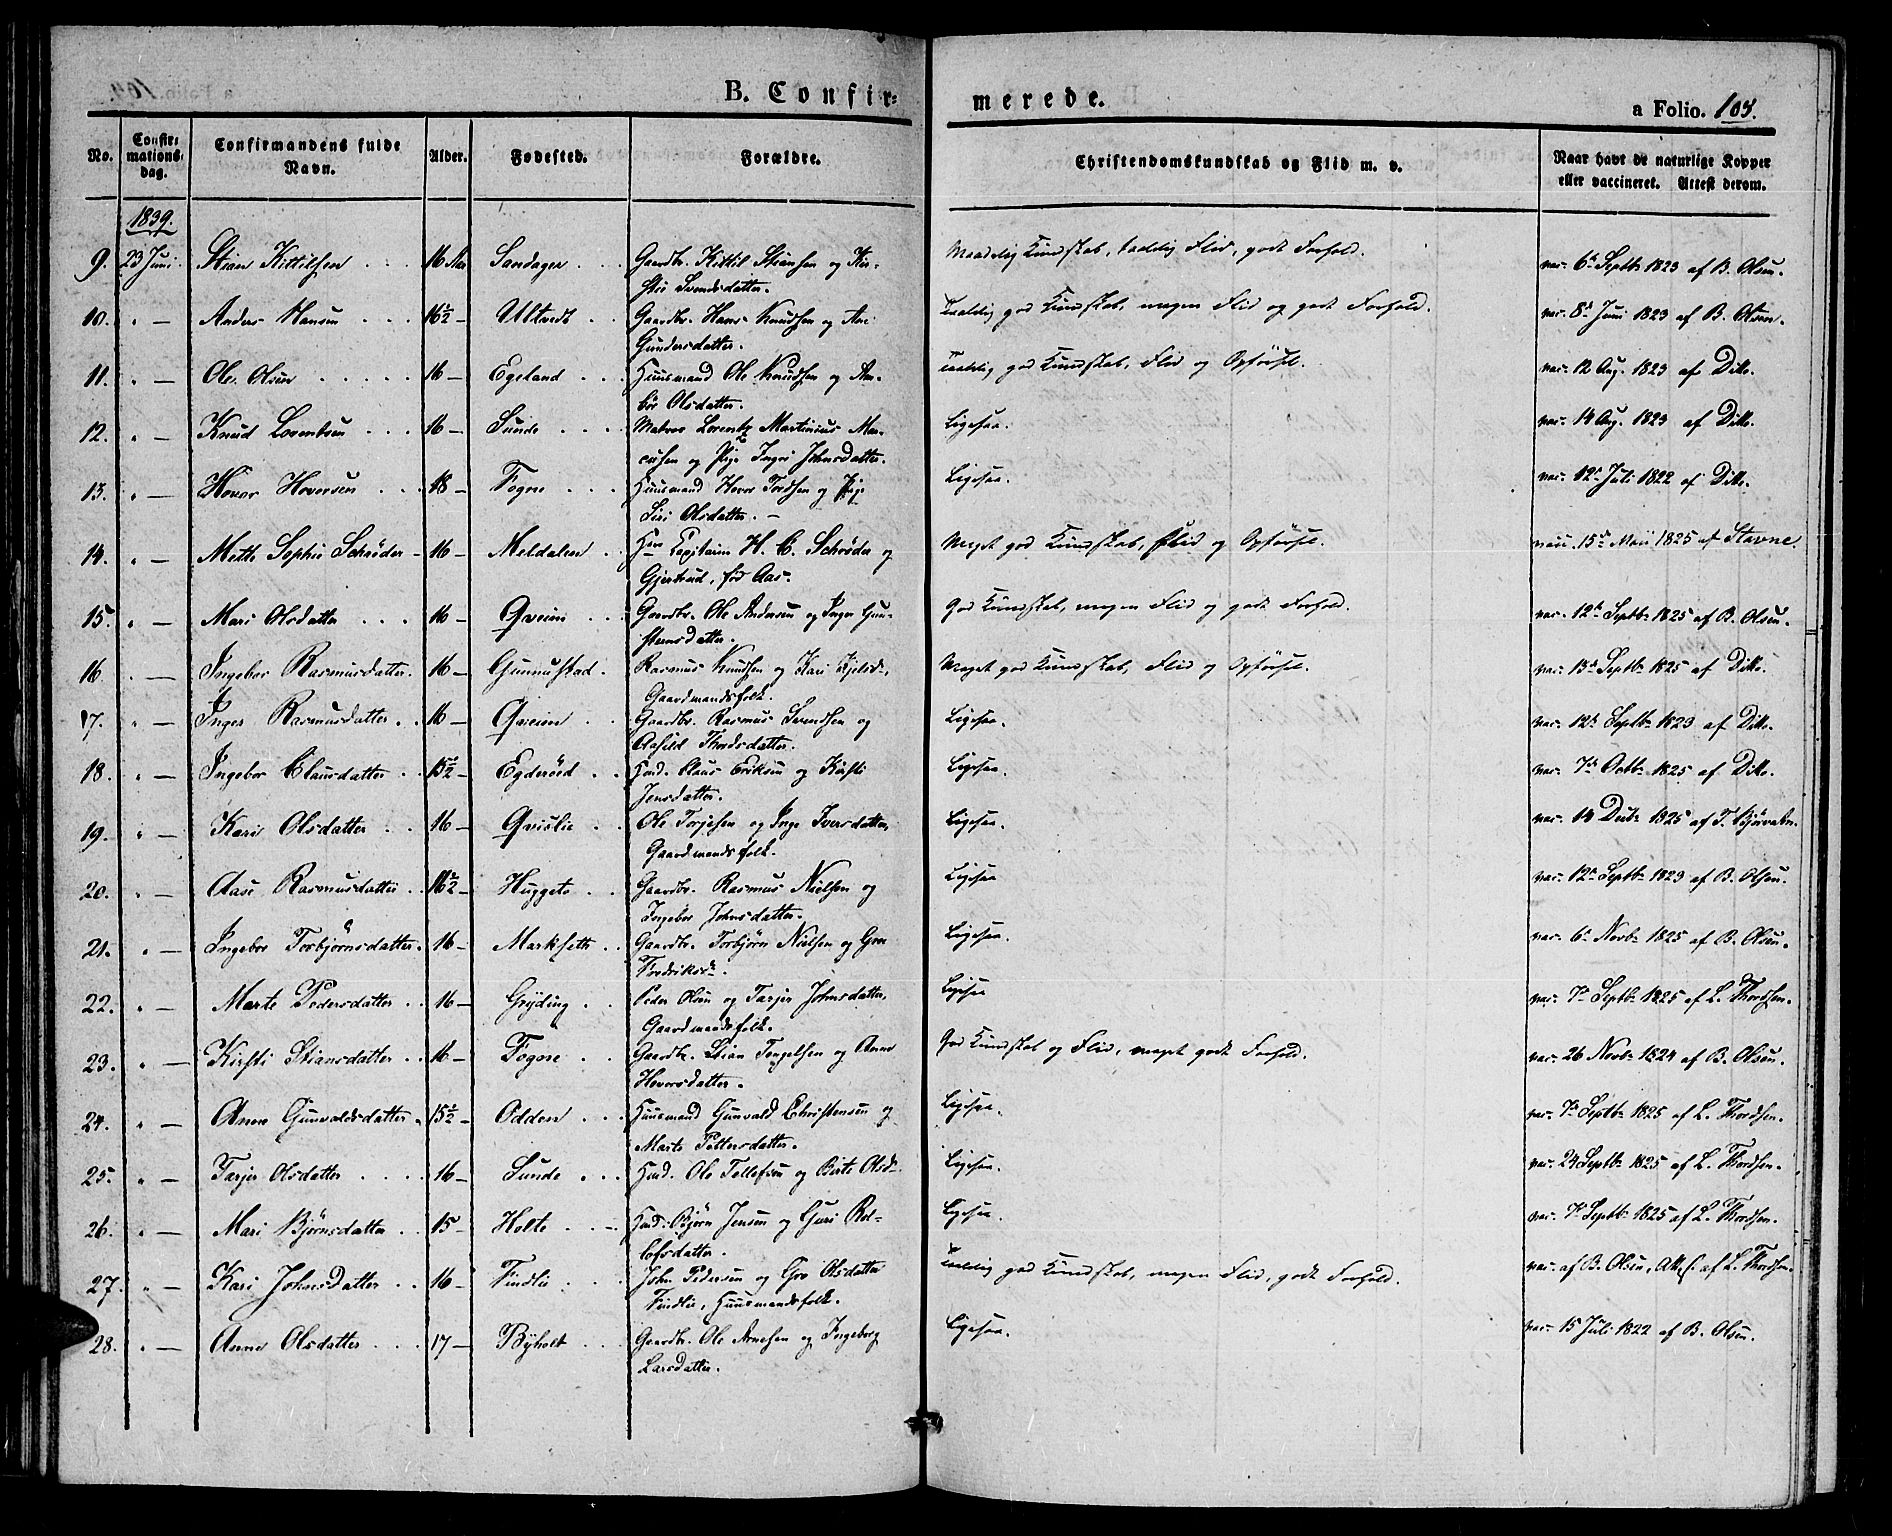 B. Confir=
merede.
a Folio. 108.
No.
Confir:
mations:
dag.
Confirmandens fulde
Navn.
Alder.
Fødested.
Forældre.
Christendomskundskab og Flid m. v.
Naar havt de naturlige Kopper
eller vaccineret. Attest derom.
1839.
9. 23 Juni Stian Kittilsen 16 Aar Sandager Gaardbr. Kittil Stiansen og Kir-
sti Svendsdatter.
Maadelig Kundskab, taalig Flid, godt Forhold. vac. 6 Septb. 1823 af B. Olsen.
10. " — Anders Hansen 16½ — Ultvedt Gaardbr. Hans Knudsen og An
Gundersdatter.
Taalig god Kundskab, megen Flid og godt Forhold. vac. 8 Juni 1823 af B. Olsen.
11. " — Ole Olsen 16 — Egeland Huusmand Ole Knudsen og An-
Olsdatter.
Taalig god Kundskab, Flid og Opførsel. vac. 12 Aug. 1823 af Ditto.
12. " — Knud Lorentsen 16 — Sunde Matros Lorentz Martinius Mar-
cusen og Pige Inger Johnsdatter.
Ligesaa. vac. 14 Aug. 1823 af Ditto.
13. " — Hover Hoversen 18 — Fogne Huusmand Hover Tordsen og Pige
Siri Olsdatter. —
Ligesaa. vac. 12 Juli 1822 af Ditto.
14. " — Mette Sophie Schrøder — 16 — Meldalen Hrr Capitain H. C. Schrøder og
Gjertrud, fød Aas.
Meget god Kundskab, Flid og Opførsel. vacc. 15 Mai 1825 af Stavne.
15. " — Mari Olsdatter 16 — Qveim Gaardbr. Ole Andersen og Inger Gun-
stensdatter.
God Kundskab, megen Flid og godt Forhold. vac. 12 Septb. 1825 af B. Olsen.
16 " — Ingebor Rasmusdatter. 16 — Gunnustad Rasmus Knudsen og Kari Kjelsd.,
Gaardmandsfolk.
Meget god Kundskab, Flid og Opførsel. vac. 13 Septb. 1825 af Ditto.
17. " — Inger Rasmusdatter 16 — Qveim Gaardbr. Rasmus Svendsen og
Aasild Thordsdatter.
Ligesaa. vac. 12 Septb. 1823 af Ditto.
18. " — Ingebor Clausdatter 15½ — Egderöed Hmd. Claus Eriksen og Kirsti
Jensdatter.
Ligesaa. vac. 7 Octb. 1825 af Ditto.
19. " — Kari Olsdatter 16 — Qvislie Ole Torjesen og Inge Iversdatter,
Gaardmandsfolk.
Ligesaa. vac. 14 Decb. 1825 af T. Bjørvatn.
20. " — Aase Rasmusdatter 16½ — Huggete Gaardbr. Rasmus Nielsen og
Ingebor Johnsdatter.
Ligesaa vac. 12 Septb. 1823 af B. Olsen.
21. " — Ingebor Torbjørnsdatter. 16 — Marksett Gaardbr. Torbjørn Nielsen og Gro
Fredriksd.
Ligesaa. vac. 6 Novb. 1825 af B. Olsen.
22. " — Marte Pedersdatter 16 — Gryding Peder Olsen og Tarjer Johnsdatter,
Gaardmandsfolk.
Ligesaa vac. 7 Septb. 1825 af L. Thordsen.
23. " — Kirsti Stiansdatter 16 — Fogne Gaardbr. Stian Tengelsen og Anne
Hoversdatter.
God Kundskab og Flid, meget godt Forhold. vac. 26 Novb. 1824 af B. Olsen.
24. " — Anne Gunvaldsdatter 15½ — Odden Huusmand Gunvald Christensen og
Marte Pettersdatter.
Ligesaa. vac. 7 Septb. 1825 af L. Thordsen.
25. " — Tarjer Olsdatter 16 — Sunde Hmd. Ole Tellefsen og Berte Olsd.
Ligesaa. vac. 24 Septb. 1825 af L. Thordsen.
26. " — Mari Bjørnsdatter 15 — Holte Hmd. Bjørn Jensen og Guri Rol-
lofsdatter.
Ligesaa. vac. 7 Septb. 1825 af L. Thordsen.
27. " — Kari Johnsdatter 16 — Findlie John Pedersen og Gro Olsdatter
Findlie, Huusmandsfolk.
Taalig god Kundskab, megen Flid, godt Forhold. vac. af B. Olsen, Attest af L. Thordsen.
28. " — Anne Olsdatter 17 — Byholt Gaardbr. Ole Arnesen og Ingeborg
Larsdatter.
Ligesaa. vac. 15 Juli 1822 af B. Olsen.